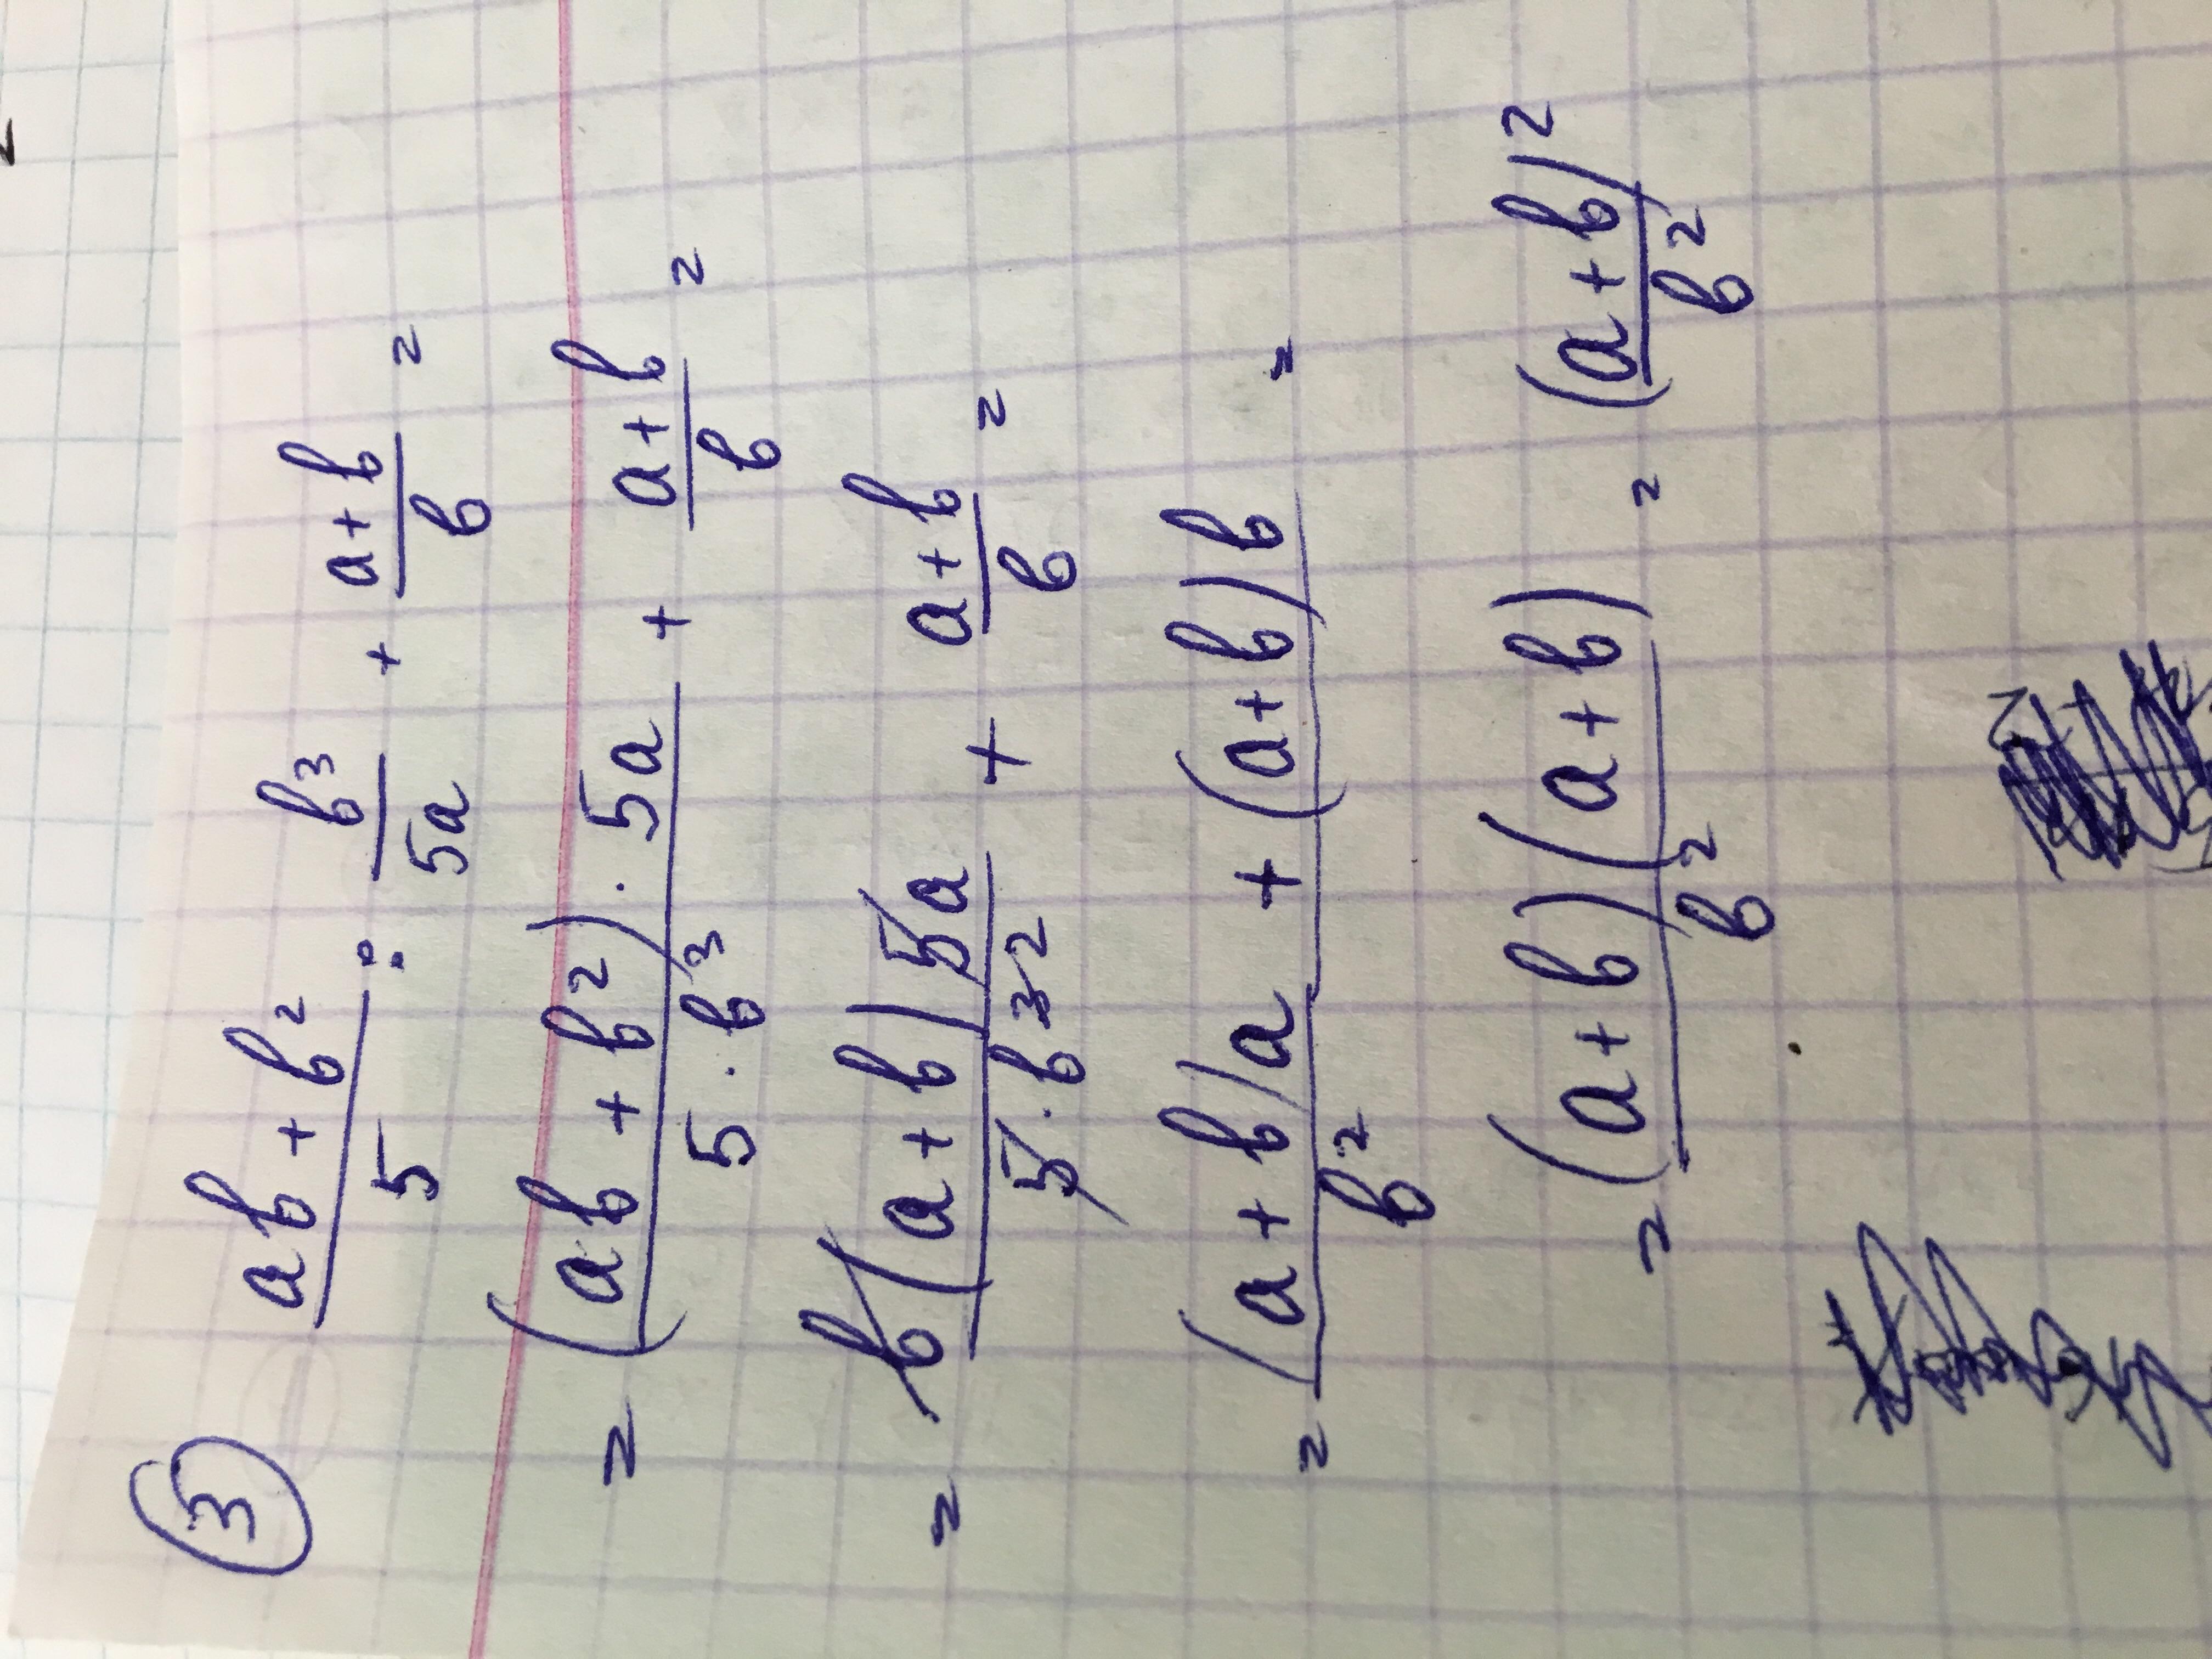 ③ (ab + b²)/5 : b³/5a + (a+b)/b =
= (ab + b²) · 5a / 5 · b³ + (a+b)/b =
= b(a+b) 5a / 5 · b³ ² + (a+b)/b =
= (a+b)a + (a+b)b / b² =
= (a+b)(a+b) / b² = (a+b)² / b²